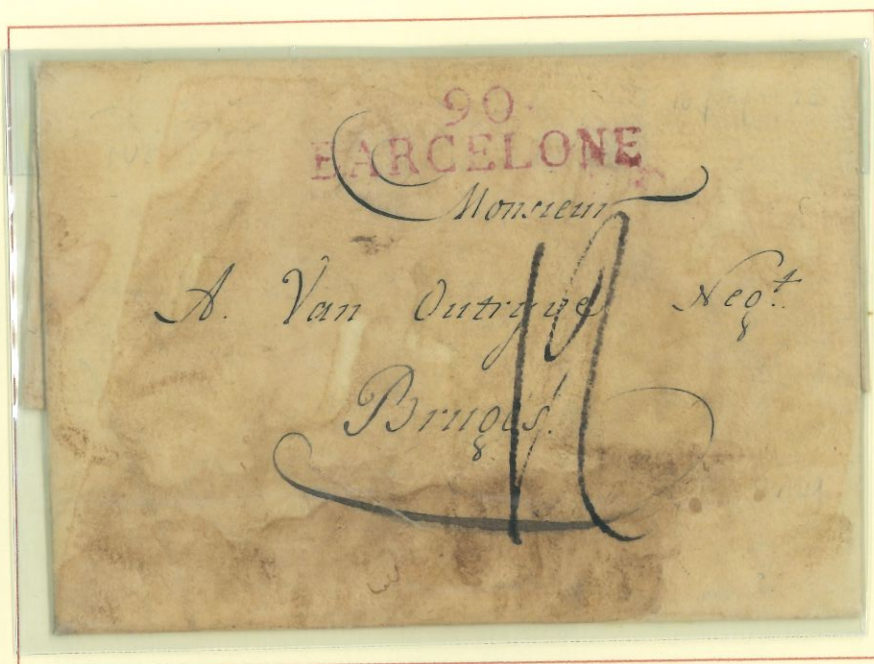 90.
BARCELONE
Monsieur
A. Van Outryve Neg.t
Bruges.